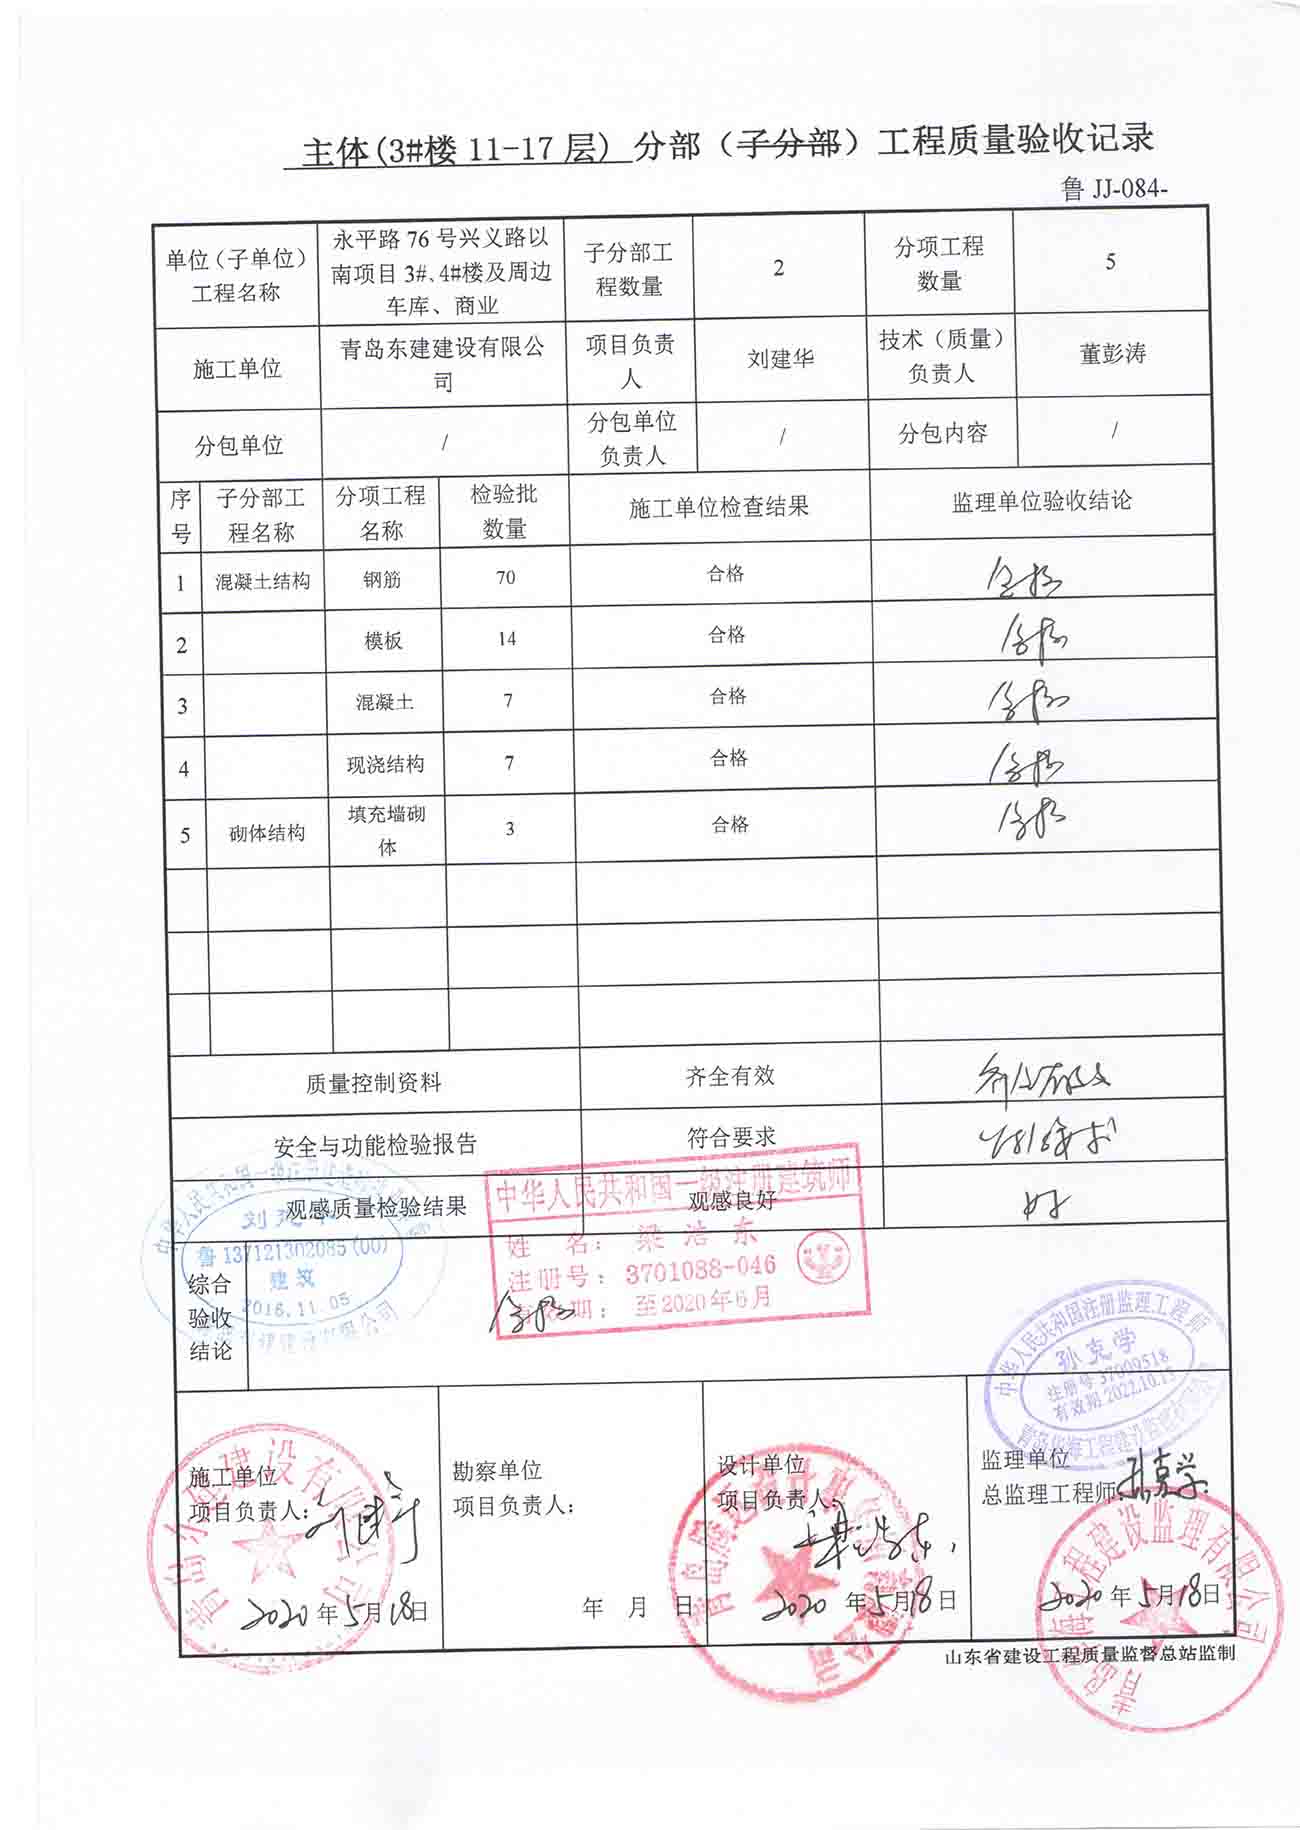 主体(3#楼 11-17 层) 分部（子分部）工程质量验收记录
鲁 JJ-084-
单位（子单位）工程名称 永平路 76 号兴义路以南项目 3#、4#楼及周边车库、商业 子分部工程数量 2 分项工程数量 5
施工单位 青岛东建建设有限公司 项目负责人 刘建华 技术（质量）负责人 董彭涛
分包单位 / 分包单位负责人 / 分包内容 /
序号 子分部工程名称 分项工程名称 检验批数量 施工单位检查结果 监理单位验收结论
1 混凝土结构 钢筋 70 合格 合格
2 模板 14 合格 合格
3 混凝土 7 合格 合格
4 现浇结构 7 合格 合格
5 砌体结构 填充墙砌体 3 合格 合格
质量控制资料 齐全有效 齐全有效
安全与功能检验报告 符合要求 符合要求
观感质量检验结果 观感良好 好
中华人民共和国一级注册建筑师
姓 名： 梁浩东
注册号：3701088-046
有效期： 至2020年6月
鲁 137121302085(00)
建筑
2016.11.05
综合验收结论 合格
中华人民共和国注册监理工程师
孙克学
注册号 37009518
有效期 2022.10.15
施工单位
项目负责人：刘建华
2020 年 5 月 18 日
勘察单位
项目负责人：
年 月 日
设计单位
项目负责人：梁浩东
2020 年 5 月 18 日
监理单位
总监理工程师：孙克学
2020 年 5 月 18 日
山东省建设工程质量监督总站监制